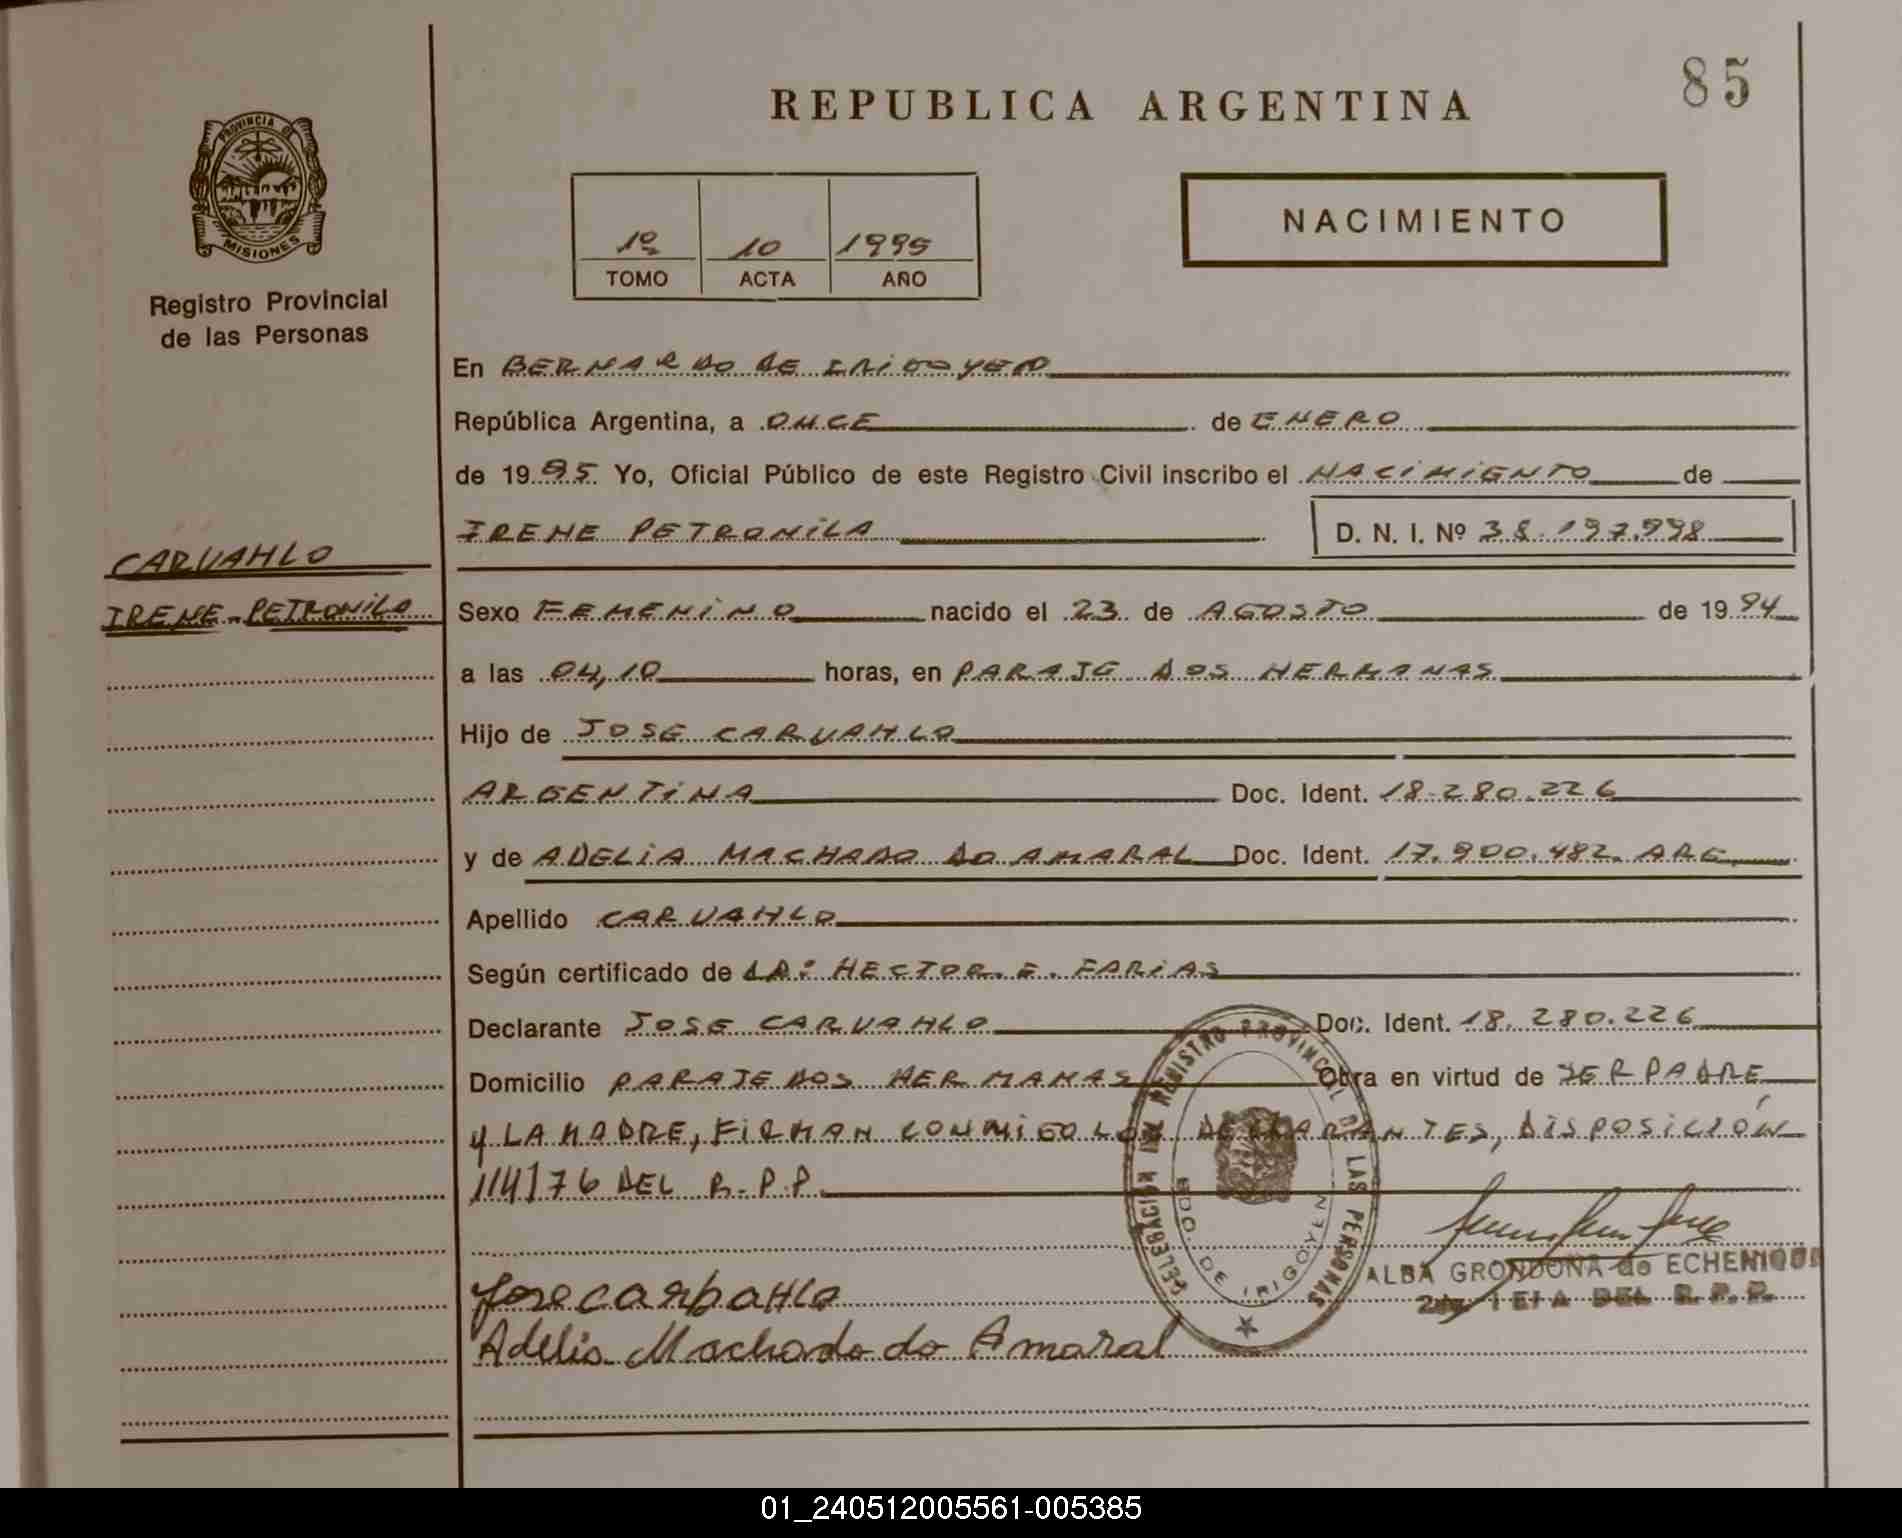 85
REPUBLICA ARGENTINA
PROVINCIA DE
MISIONES
Registro Provincial
de las Personas
1º 10 1995
TOMO ACTA AÑO
NACIMIENTO
En BERNARDO DE IRIGOYEN
República Argentina, a ONCE de ENERO
de 1995 Yo, Oficial Público de este Registro Civil inscribo el NACIMIENTO de
IRENE PETRONILA D. N. I. Nº 38.197.998
CARVAHLO
IRENE-PETRONILA
Sexo FEMENINO nacido el 23 de AGOSTO de 1994
a las 04,10 horas, en PARAJE DOS HERMANAS
Hijo de JOSE CARVAHLO
ARGENTINA Doc. Ident. 18.280.226
y de ADELIA MACHADO DO AMARAL Doc. Ident. 17.900.482. ARG.
Apellido CARVAHLO
Según certificado de DR: HECTOR. E. FARIAS
Declarante JOSE CARVAHLO Doc. Ident. 18.280.226
Domicilio PARAJE DOS HERMANAS Obra en virtud de SER PADRE
y LA MADRE, FIRMAN CONMIGO LOS DECLARANTES, DISPOSICIÓN
114/76 DEL R.P.P.
REGISTRO PROVINCIAL DE LAS PERSONAS
BDO. DE IRIGOYEN
ALBA GRONDONA de ECHENIQUE
DEL R.P.P.
Jose carbaHlo
Adelia Machado do Amaral
01_240512005561-005385